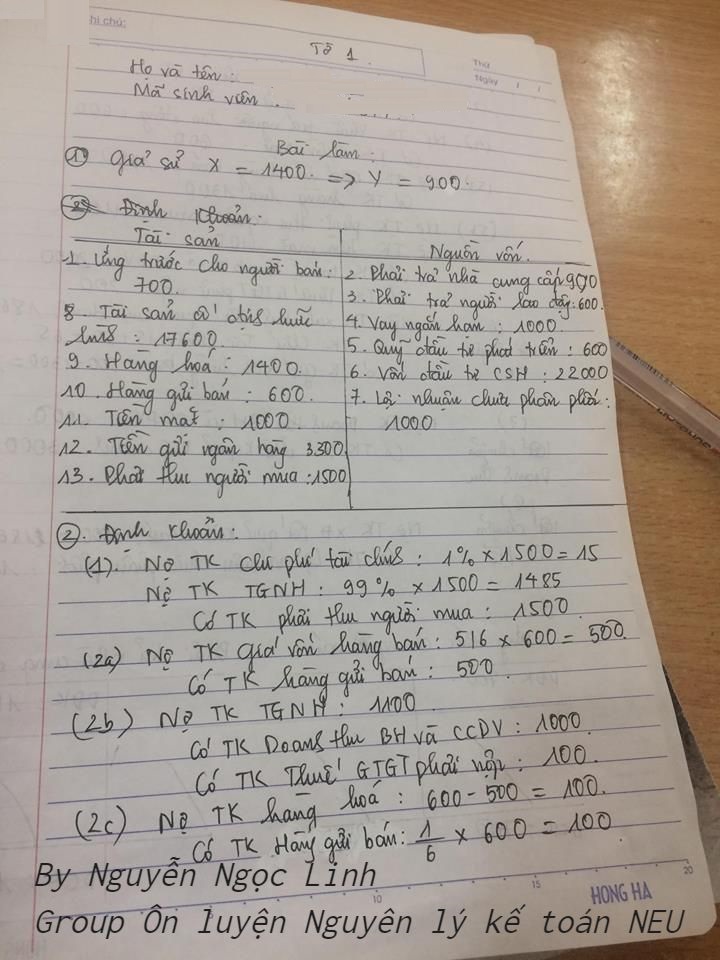 hi chú:
Tờ 1.
Thứ
Ngày / /
Họ và tên:
Mã sinh viên.
Bài làm:
1) Giả sử X = 1400. => Y = 900.
2) Định khoản:
Tài sản
1. Ứng trước cho người bán:
700.
8. Tài sản cố định hữu
hình: 17600.
9. Hàng hoá: 1400.
10. Hàng gửi bán: 600.
11. Tiền mặt: 1000
12. Tiền gửi ngân hàng 3300
13. Phải thu người mua: 1500
Nguồn vốn.
2. Phải trả nhà cung cấp 900
3. Phải trả người lao động: 600.
4. Vay ngắn hạn: 1000.
5. Quỹ đầu tư phát triển: 600
6. Vốn đầu tư CSH: 22000
7. Lợi nhuận chưa phân phối:
1000
2. Định khoản:
(1). Nợ TK chi phí tài chính: 1% x 1500 = 15
Nợ TK TGNH: 99% x 1500 = 1485
Có TK phải thu người mua: 1500
(2a) Nợ TK giá vốn hàng bán: 5/6 x 600 = 500.
Có TK hàng gửi bán: 500.
(2b) Nợ TK TGNH: 1100.
Có TK Doanh thu BH và CCDV: 1000.
Có TK Thuế GTGT phải nộp: 100.
(2c) Nợ TK hàng hoá: 600 - 500 = 100.
Có TK Hàng gửi bán: 1/6 x 600 = 100.
By Nguyễn Ngọc Linh
10 15 20
HONG HA
Group Ôn luyện Nguyên lý kế toán NEU